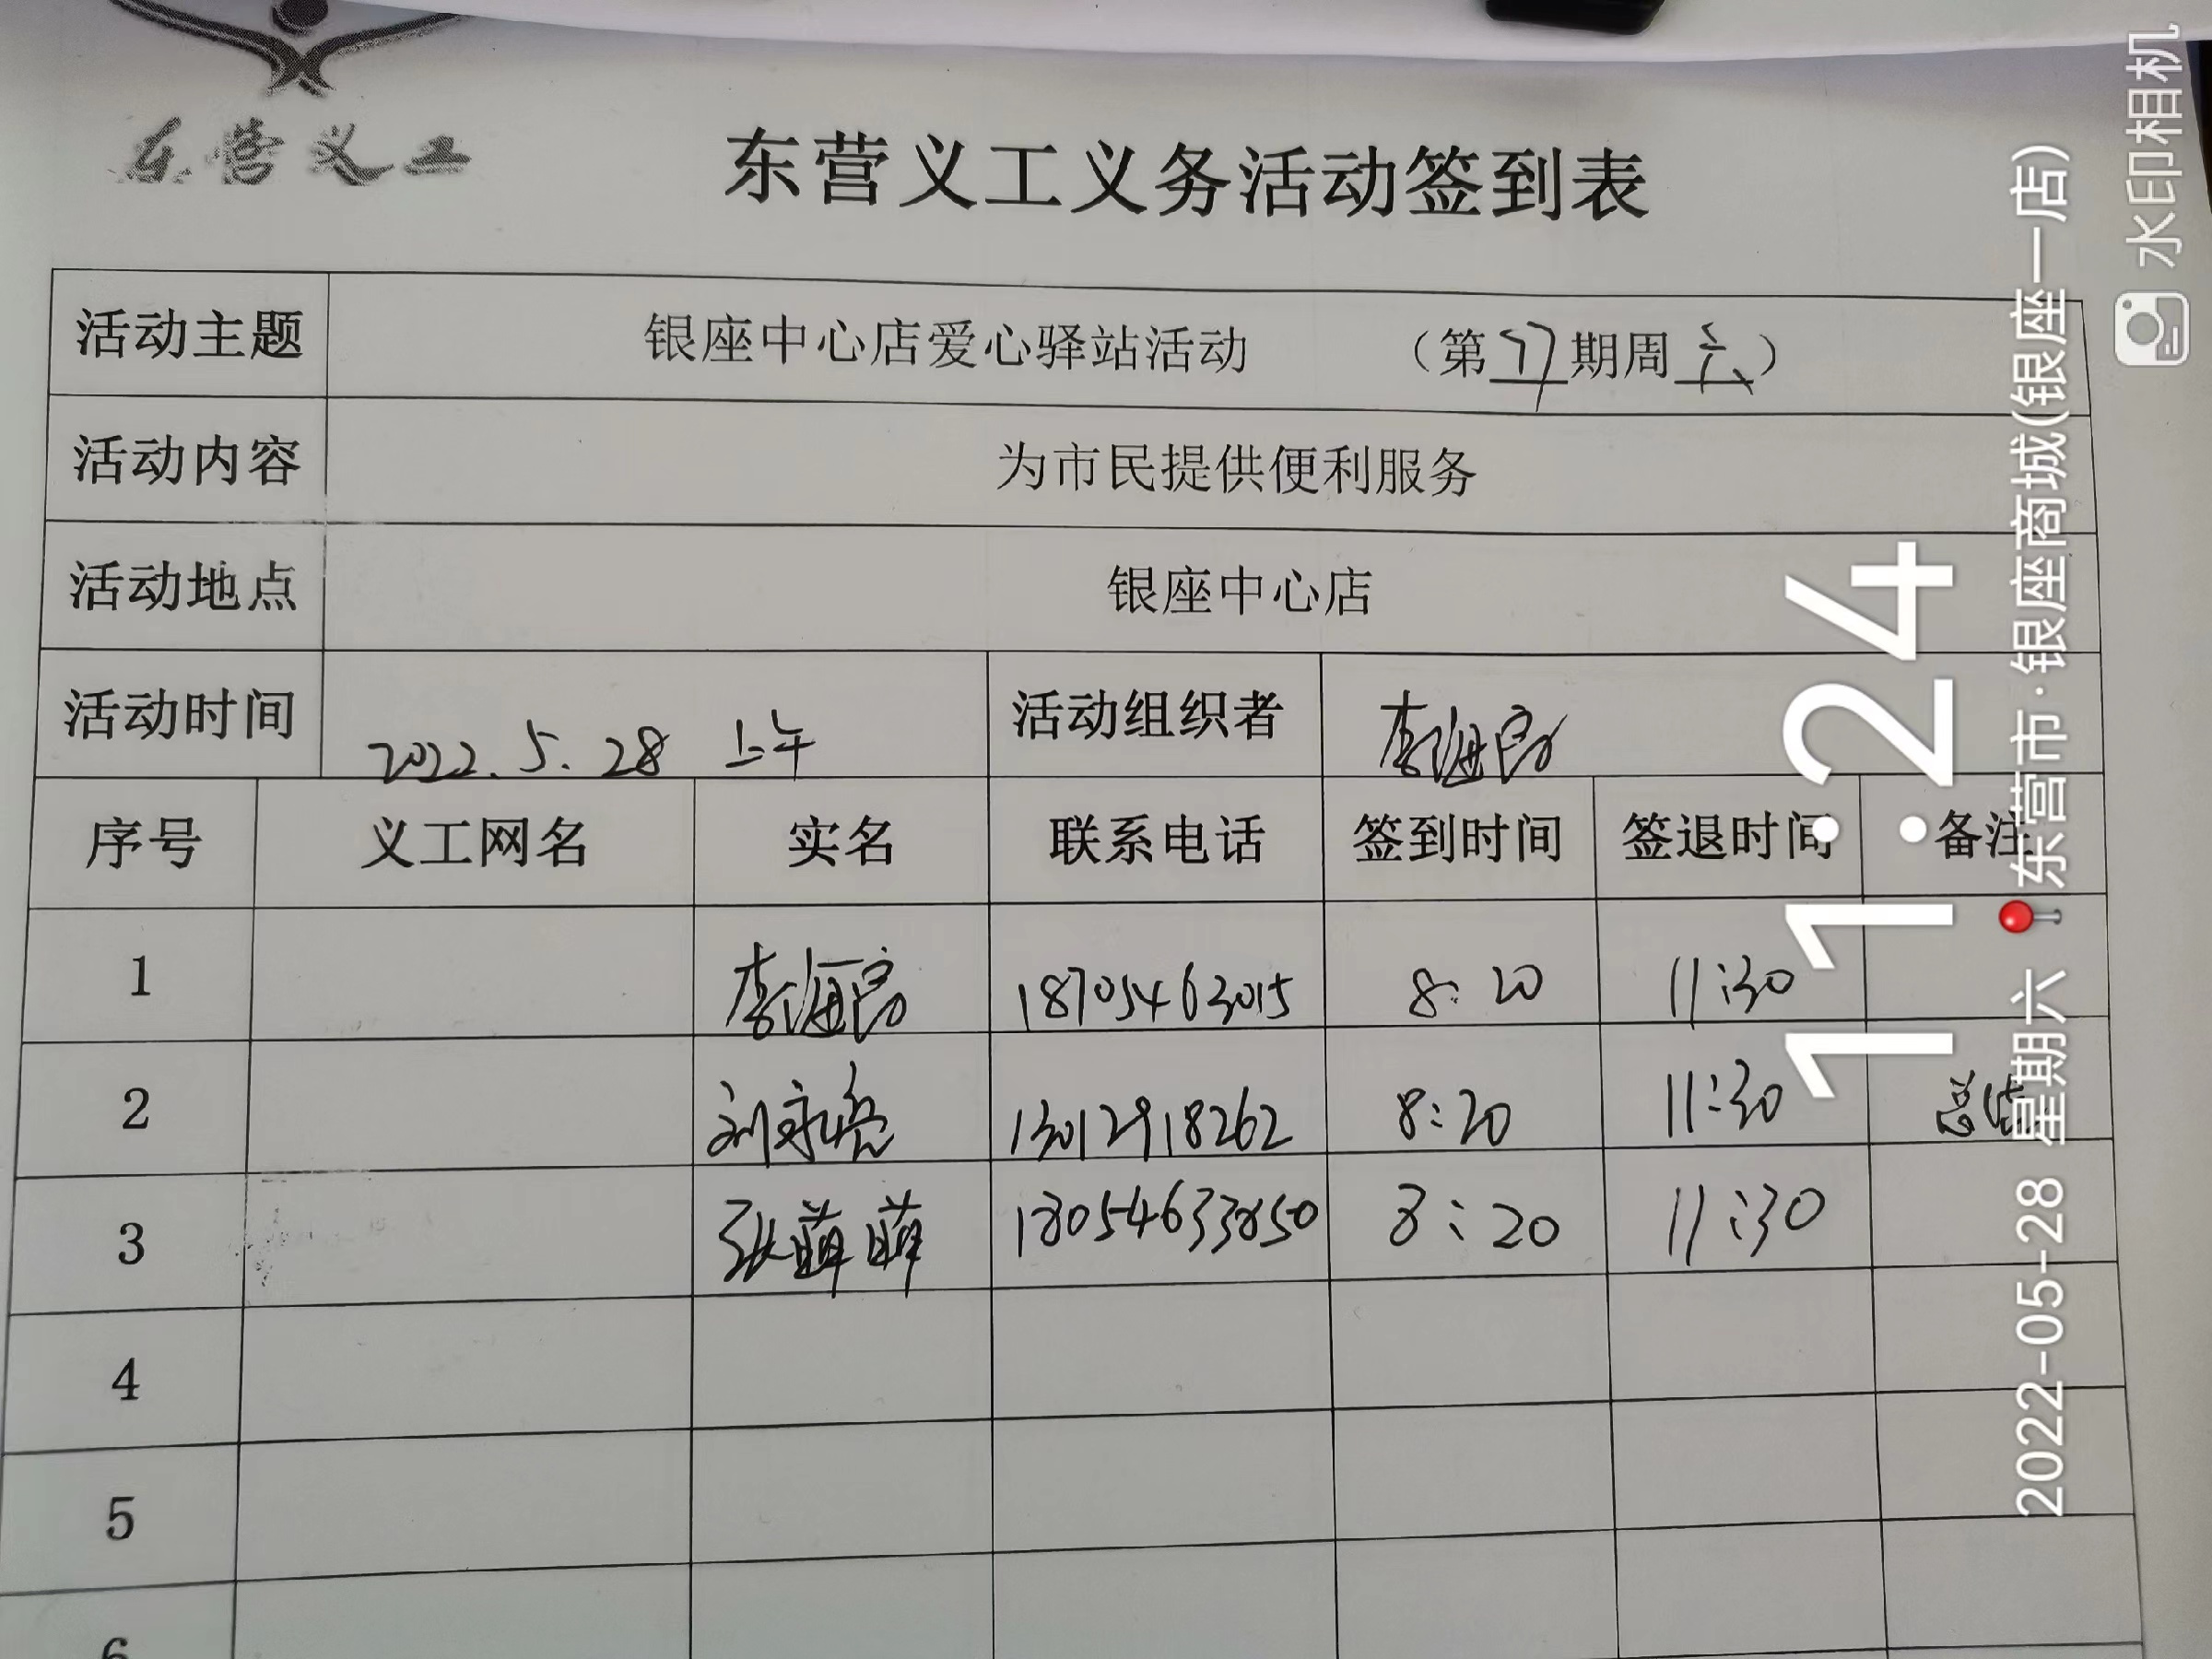 东营义工
东营义工义务活动签到表
活动主题 银座中心店爱心驿站活动 （第 期周六）
活动内容 为市民提供便利服务
活动地点 银座中心店
活动时间 2022.5.28 上午 活动组织者 李海民
序号 义工网名 实名 联系电话 签到时间 签退时间 备注
1 李海民 18705463015 8:20 11:30
2 刘永亮 13012918262 8:20 11:30 总结
3 张萌萌 18054633850 8:20 11:30
4
5
6
11:24
2022-05-28 星期六 东营市·银座商城(银座一店)
水印相机